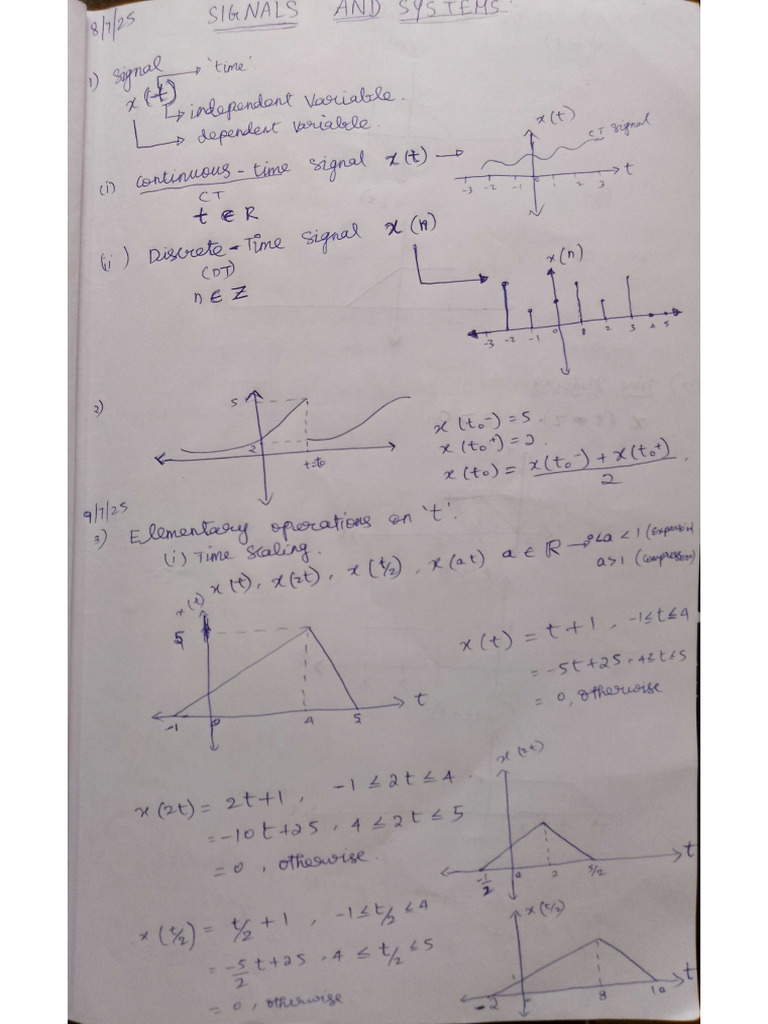 8/7/25
SIGNALS AND SYSTEMS.
1) Signal
→ 'time'
x(t)
→ independent variable.
→ dependent variable.
(i) Continuous-time signal x(t) →
CT
t ∈ R
x(t)
CT signal
-3 -2 -1 0 1 2 3 t
(ii) Discrete-Time Signal x(n)
(DT)
n ∈ Z
x(n)
-3 -2 -1 0 1 2 3 4 5
2)
5
2
t=t₀
x(t₀⁻) = 5.
x(t₀⁺) = 2
x(t₀) = x(t₀⁻) + x(t₀⁺) / 2.
9/7/25
3) Elementary operations on 't'.
(i) Time Scaling.
x(t), x(2t), x(t/2), x(at) a ∈ R → 0<a<1 (Expansion)
a>1 (Compression)
x(t)
5
-1 0 4 5 t
x(t) = t+1, -1≤t≤4
= -5t+25, 4≤t≤5
= 0, otherwise
x(2t) = 2t+1, -1 ≤ 2t ≤ 4.
= -10t+25, 4 ≤ 2t ≤ 5
= 0, otherwise.
x(2t)
-1/2 0 2 5/2 t
x(t/2) = t/2 + 1, -1≤t/2≤4
= -5/2 t+25, 4 ≤ t/2 ≤5
= 0, otherwise
x(t/2)
-2 8 10 t